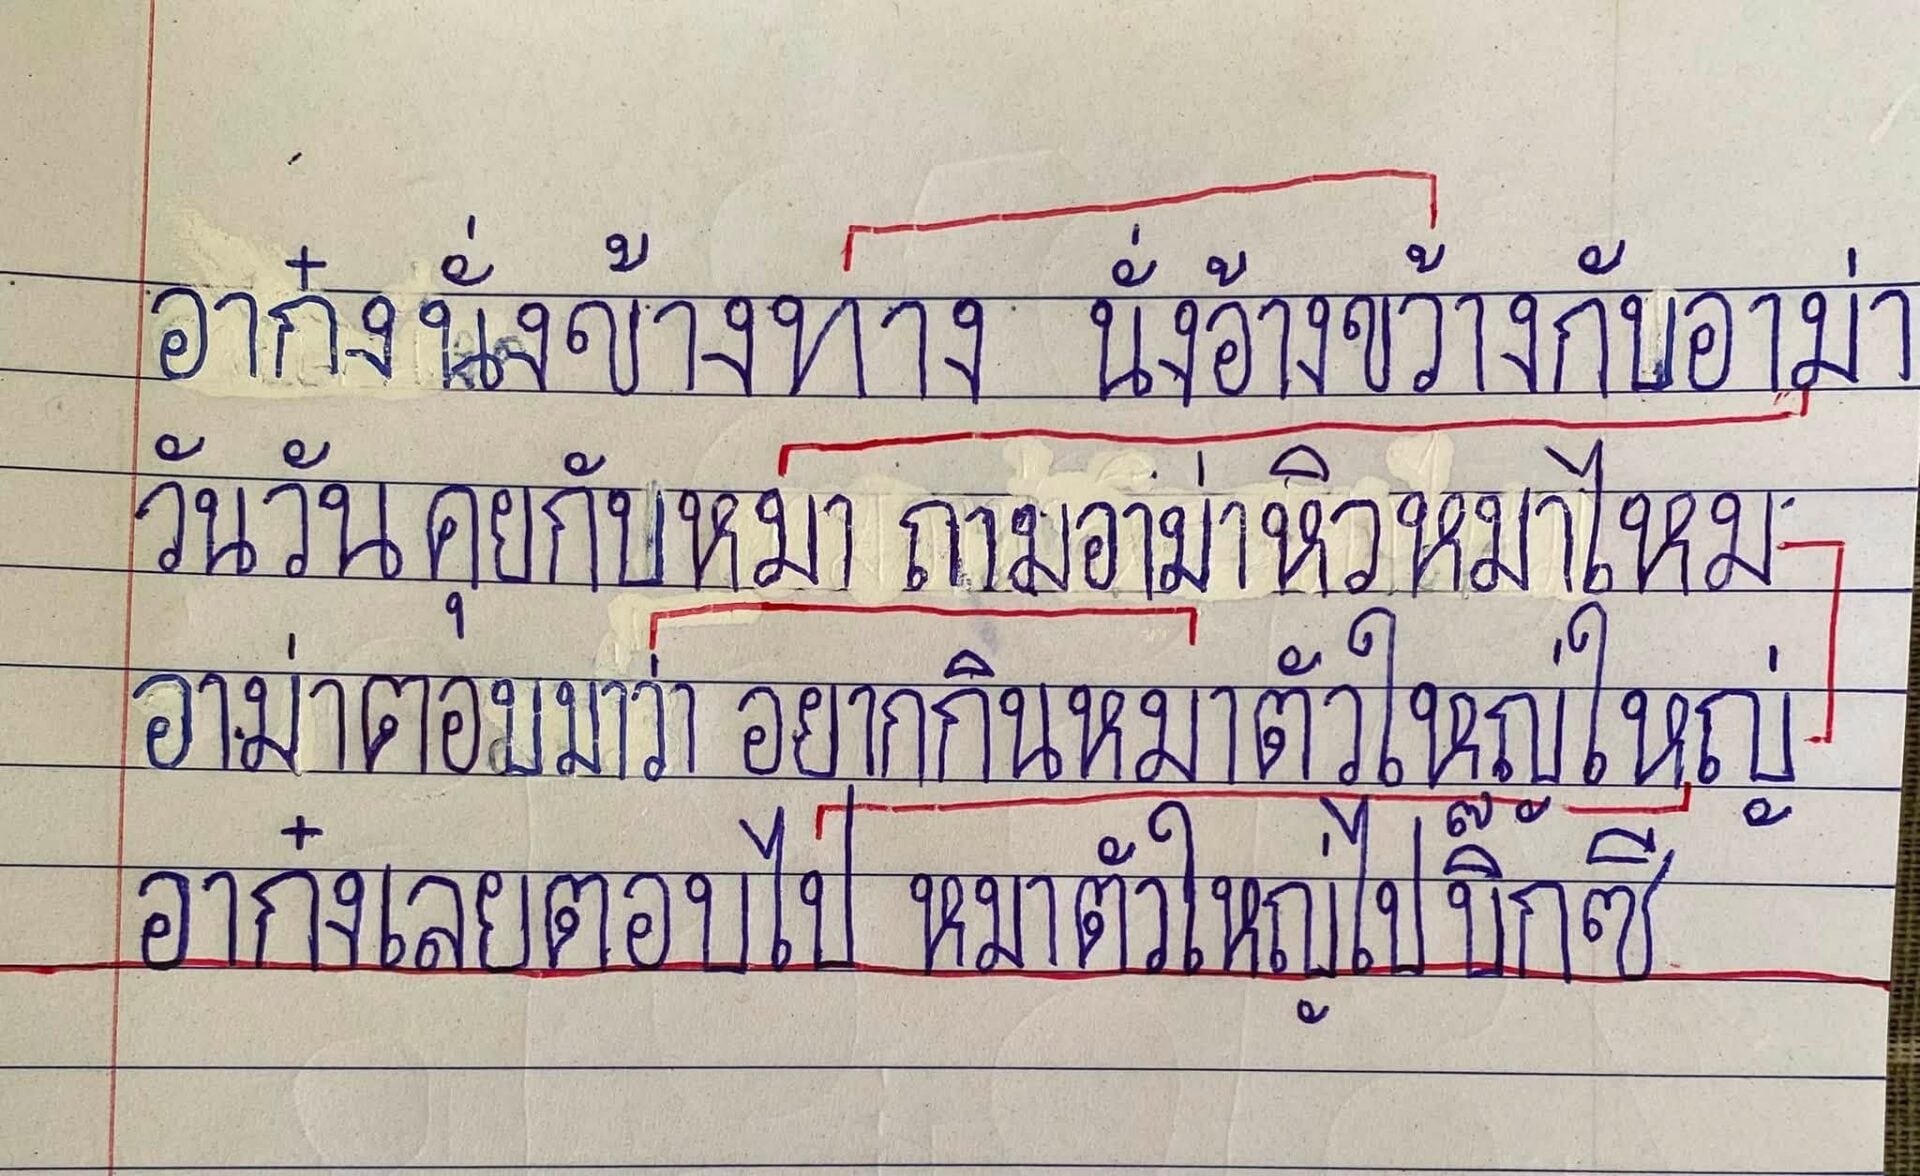 อาก๋งนั่งข้างทาง นั่งอ้างขว้างกับอาม่า
วันวันคุยกับหมา ถามอาม่าหิวหมาไหม
อาม่าตอบมาว่า อยากกินหมาตัวใหญ่ใหญ่
อาก๋งเลยตอบไป หมาตัวใหญ่ไปบิ๊กซี